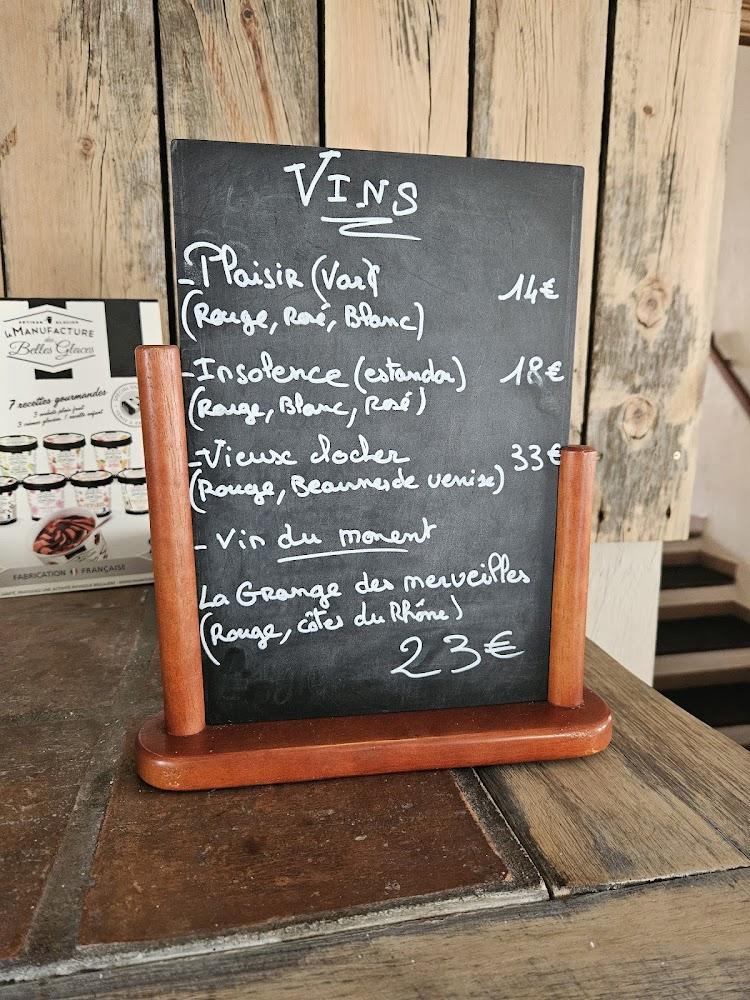 VINS
- Plaisir (Var) 14€
(Rouge, Rosé, Blanc)
- Insolence (estandon) 18€
(Rouge, Blanc, Rosé)
- Vieux clocher 33€
(Rouge, Beaumes de venise)
- Vin du moment
La Grange des merveilles
(Rouge, côtes du Rhône)
23€
ARTISAN GLACIER
La MANUFACTURE
des
Belles Glaces
7 recettes gourmandes
3 sorbets plein fruit
3 crèmes glacées / 1 recette enfant
FABRICATION FRANÇAISE